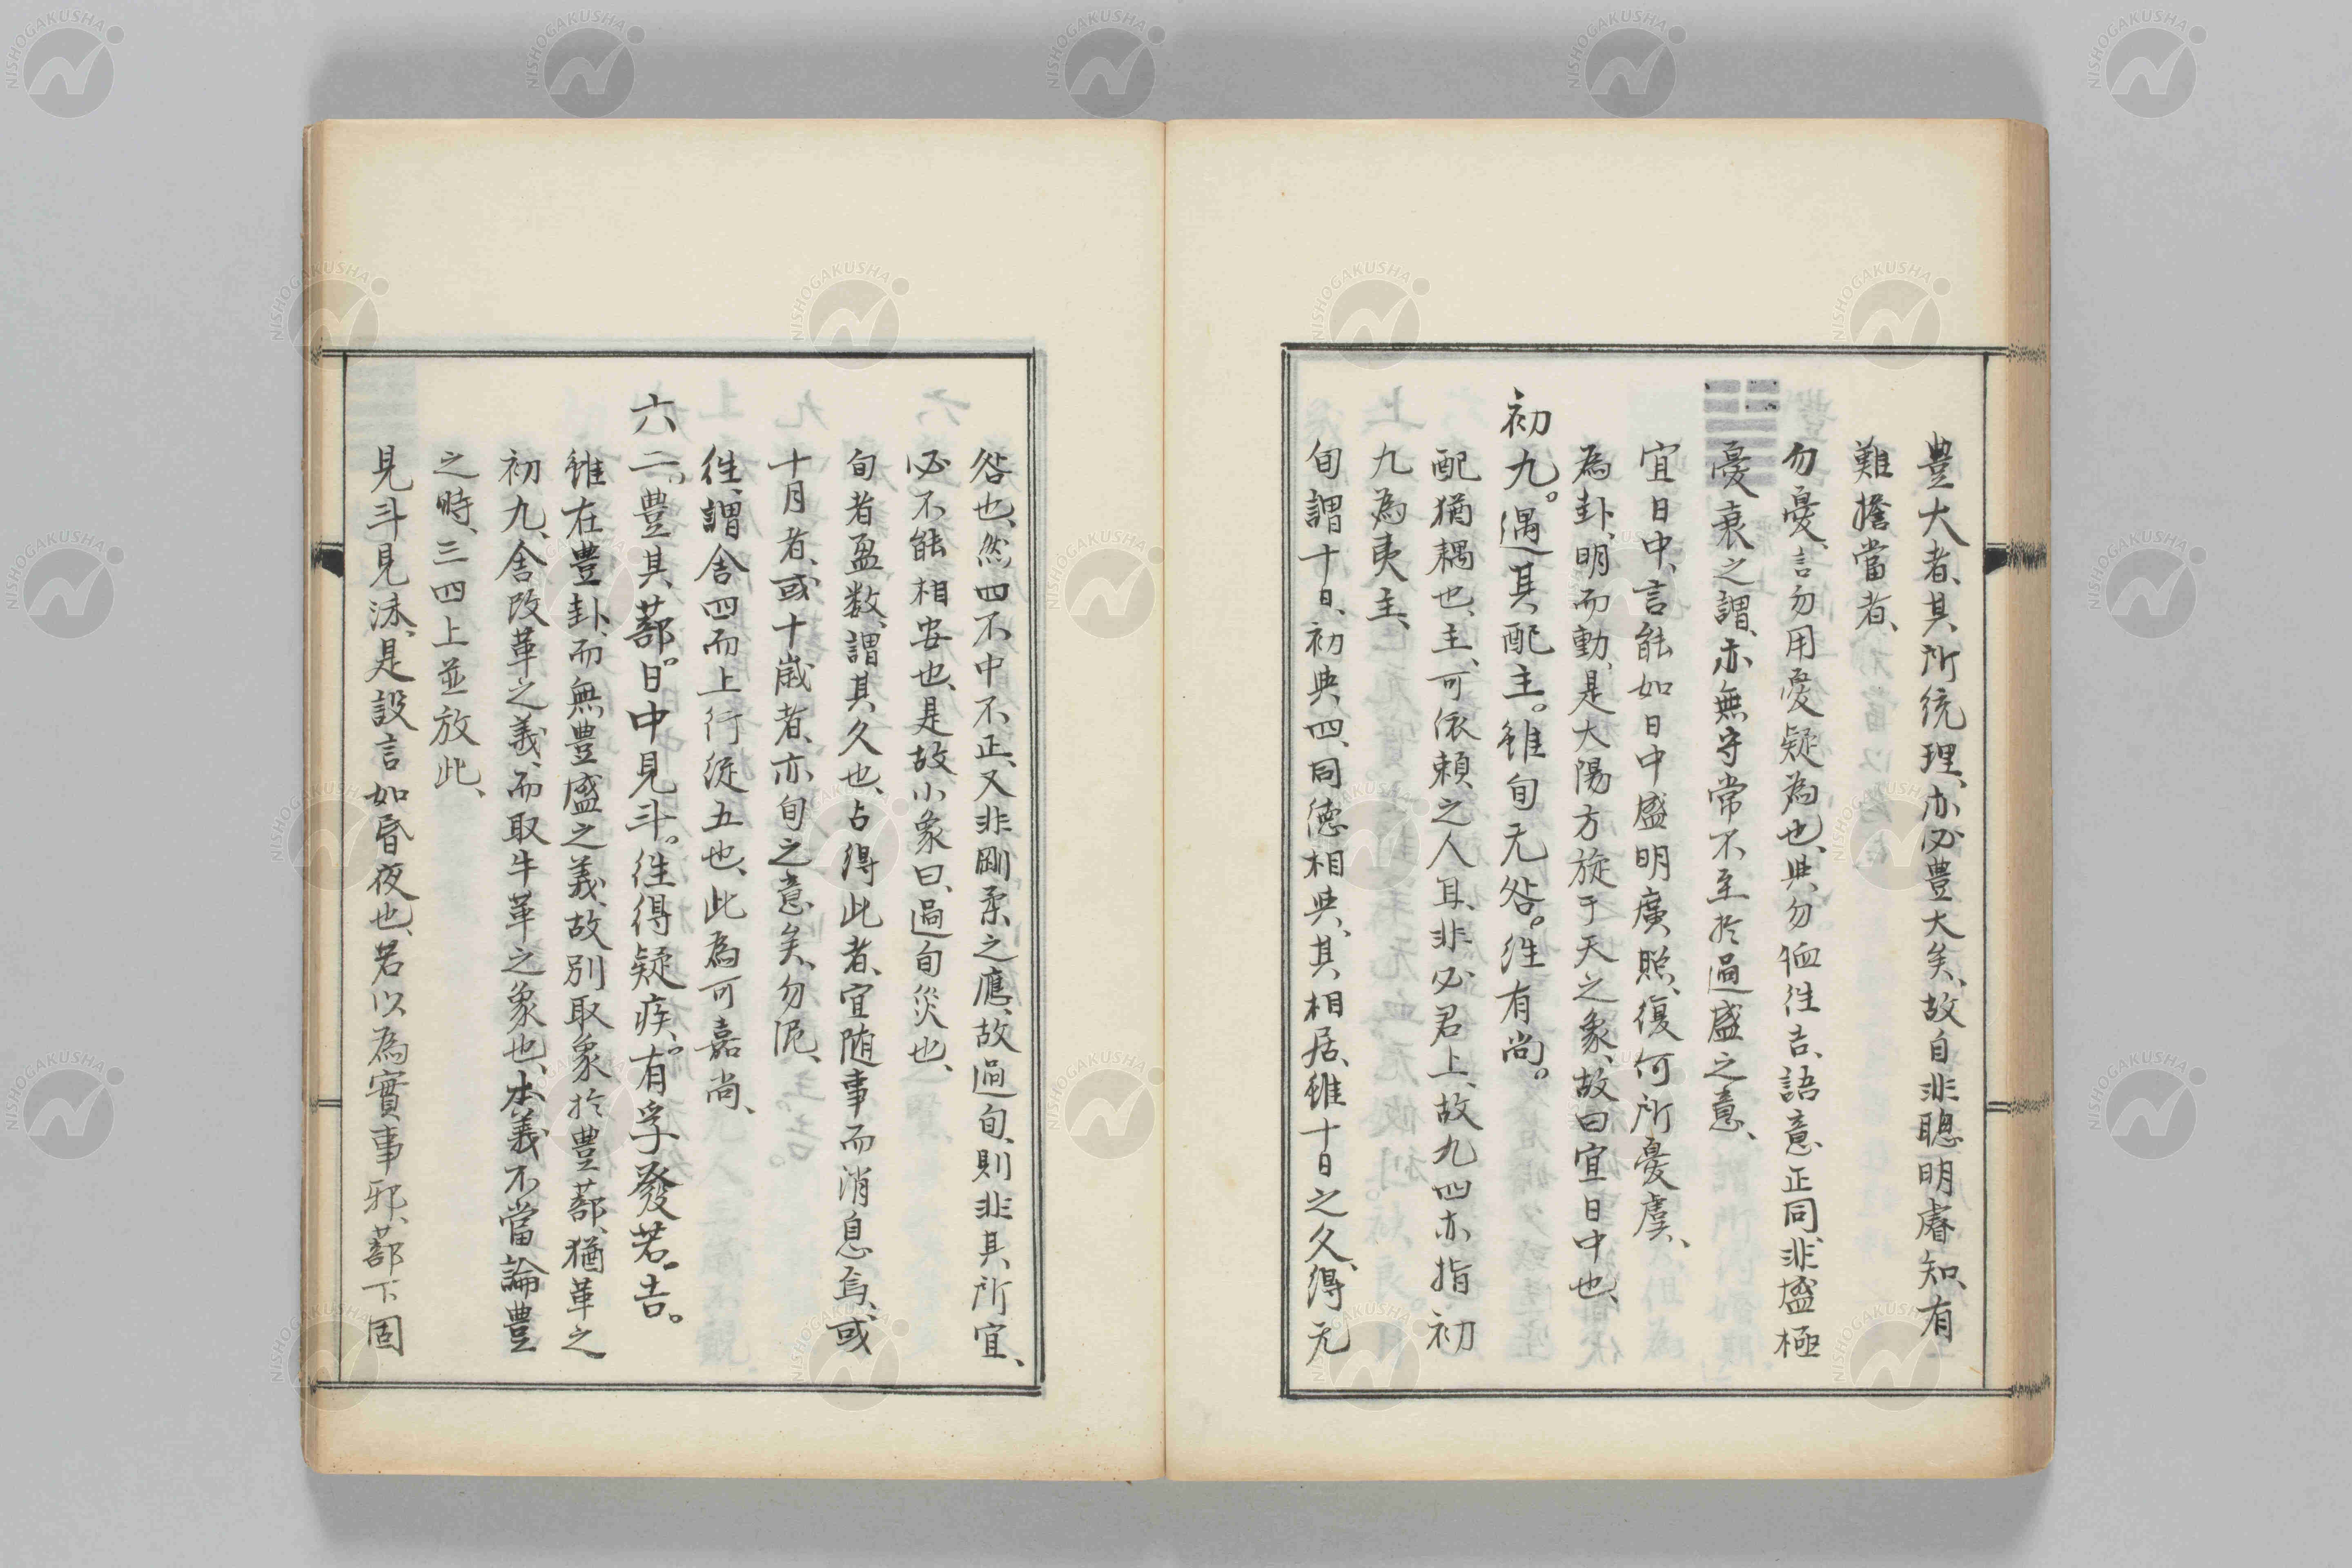 豊大者、其所統理、亦必豊大矣、故自非聰明睿知、有
難擔當者、
勿憂、言勿用憂疑為也、與勿恤徃吉、語意正同、非盛極
憂衰之謂、亦無守常不至於過盛之意、
宜日中、言能如日中盛明廣照、復何所憂虞、
為卦、明而動、是大陽方旋于天之象、故曰宜日中也、
初九。遇其配主。雖旬无咎。徃有尚。
配猶耦也、主、可依賴之人耳、非必君上、故九四亦指初
九為夷主、
旬謂十日、初與四、同徳相與、其相居、雖十日之久、得无
咎也、然四不中不正、又非剛柔之應、故過旬、則非其所宜、
必不能相安也、是故小象曰、過旬災也、
旬者盈数、謂其久也、占得此者、宜随事而消息焉、或
十月者、或十歳者、亦旬之意矣、勿泥、
徃、謂舎四而上行從五也、此為可嘉尚、
六二。豊其蔀。日中見斗。徃得疑疾。有孚發若。吉。
雖在豊卦、而無豊盛之義、故別取象於豊蔀、猶革之
初九、舎改革之義、而取牛革之象也、本義不當論豊
之時、三四上並放此、
見斗見沬、是設言如昏夜也、若以為實事邪、蔀下固